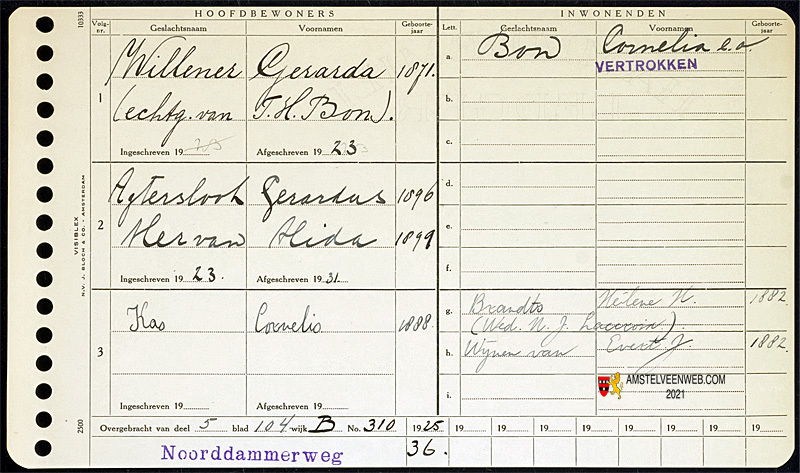 HOOFDBEWONERS INWONENDEN
Volg-nr. Geslachtsnaam Voornamen Geboorte-jaar Lett. Geslachtsnaam Voornamen Geboorte-jaar
1 Willener Gerarda 1871. a. Bon Cornelia e.a.
VERTROKKEN
(echtg. van T. H. Bon). b.
c.
Ingeschreven 19 Afgeschreven 19 23
2 Aftersloot Gerardus 1896 d.
Mer van Alida 1899 e.
f.
Ingeschreven 19 23. Afgeschreven 19 31.
3 Kas Cornelis 1888. g. Brandts Helene H. 1882
(Wed. N. J. Lacroix)
h. Wijnen van Evert J. 1882.
i.
Ingeschreven 19 Afgeschreven 19
AMSTELVEENWEB.COM
2021
Overgebracht van deel 5 blad 104 wijk B No. 310 1925 19 19 19 19 19 19 19
Noorddammerweg 36.
10333
VISIBLEX
N.V. J. BLOCH & CO. - AMSTERDAM
2500